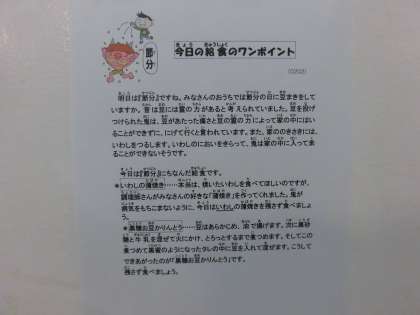 節分
今日の給食のワンポイント
明日は『節分』ですね。みなさんのおうちでは節分の日に豆まきをして
いますか。昔は豆には霊の力があると考えられていました。豆を投げ
つけられた鬼は、豆があたった痛さと豆の力によって家の中には
いることができずに、にげて行くと言われています。また、家ののきさきには、
いわしをつるします。いわしのにおいをきらって、鬼は家の中に入って来
ることができないそうです。
今日は『節分』にちなんだ給食です。
＊いわしの蒲焼き……本当は、焼いたいわしを食べてほしいのですが、
調理師さんがみなさんの好きな「蒲焼き」を作ってくれました。鬼が
病気をもちこまないように、今日はいわしの蒲焼きを残さず食べましょ
う。
＊黒糖お豆かりんとう……豆はあらかじめ、油で揚げます。次に黒砂
糖と牛乳を混ぜて火にかけ、とろっとするまで煮つめます。そしてこの
煮つめて黒蜜のようになったタレの中に豆を入れて混ぜます。こうして
できあがったのが「黒糖お豆かりんとう」です。
残さず食べましょう。